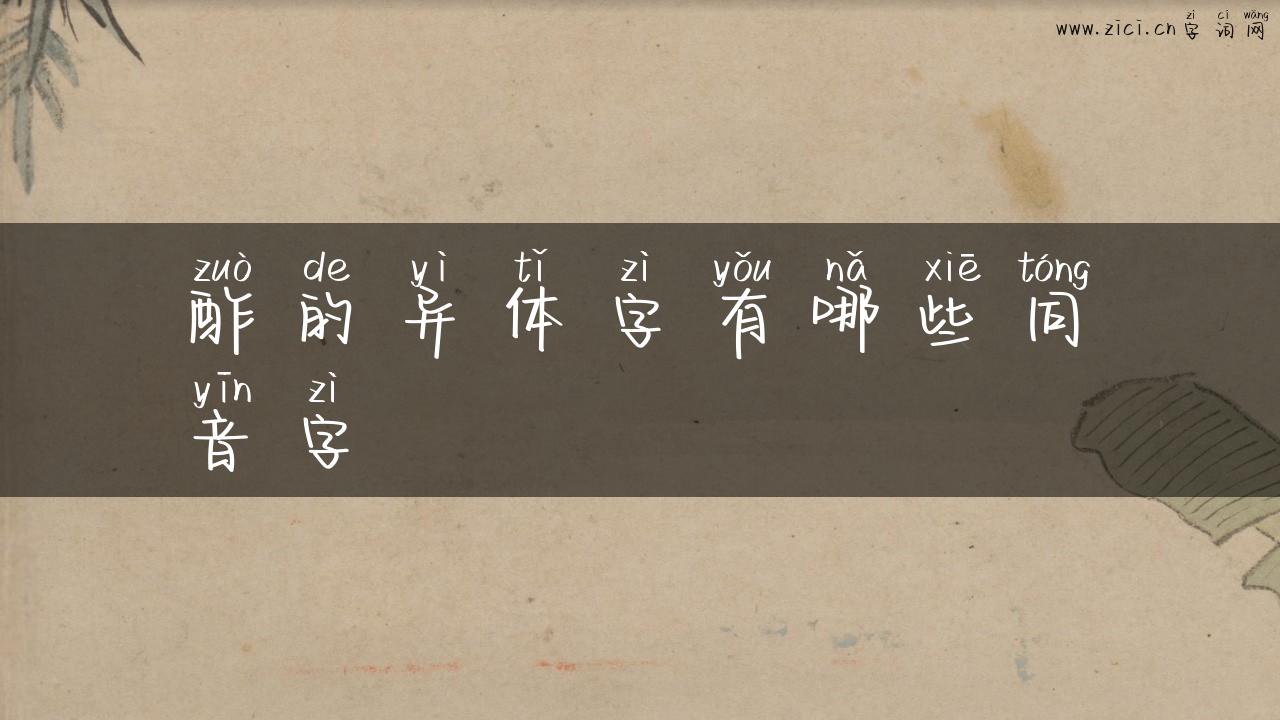 zì cí wǎng
www.zici.cn 字词网
zuò de yì tǐ zì yǒu nǎ xiē tóng
酢的异体字有哪些同
yīn zì
音字